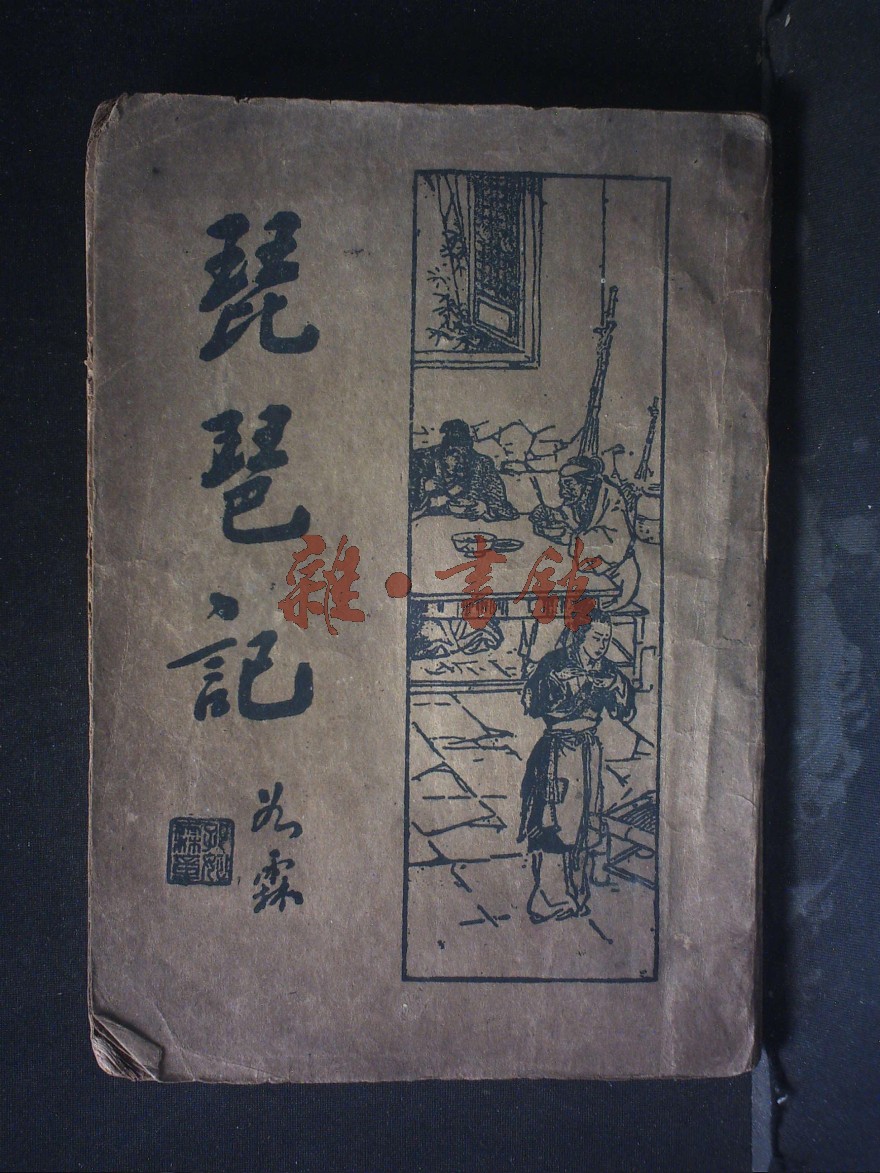 琵琶記
若霖
雜·書館